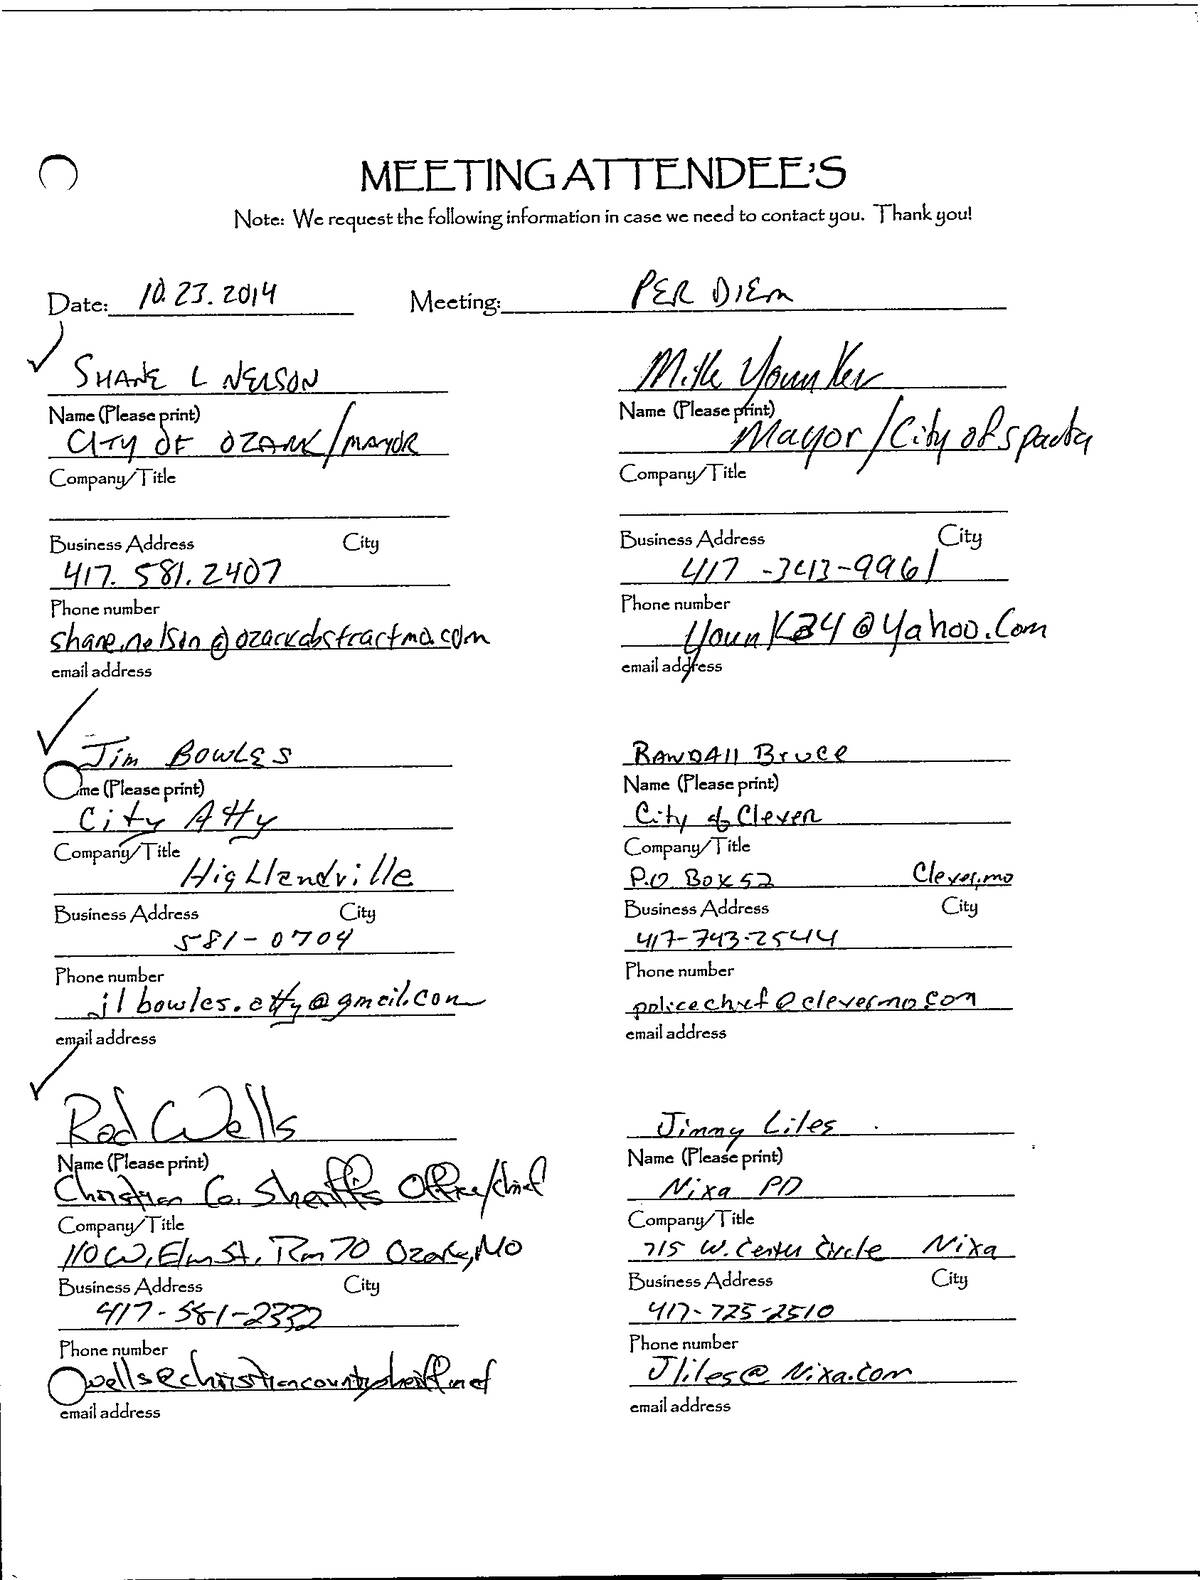 MEETING ATTENDEE'S
Note: We request the following information in case we need to contact you. Thank you!
Date: 10.23.2014 Meeting: PER DIEM
SHANE L NELSON
Name (Please print)
CITY OF OZARK/MAYOR
Company/Title
Business Address City
417.581.2407
Phone number
shane.nelson@ozarkabstractmo.com
email address
Jim BOWLES
me (Please print)
City Atty
Company/Title
Highlandville
Business Address City
581-0704
Phone number
jlbowles.atty@gmail.com
email address
Rod Wells
Name (Please print)
Christian Co. Sheriff's Office/Chief
Company/Title
110 W. Elm St. Rm 70 Ozark, MO
Business Address City
417-581-2332
Phone number
wells@christiancountysheriff.net
email address
Mike Younker
Name (Please print)
Mayor/City of Sparta
Company/Title
Business Address City
417-343-9961
Phone number
YounK34@Yahoo.Com
email address
RANDAll Bruce
Name (Please print)
City of Clever
Company/Title
P.O Box 52 Clever, mo
Business Address City
417-743-2544
Phone number
policechief@clevermo.com
email address
Jimmy Liles
Name (Please print)
Nixa PD
Company/Title
715 W. Center Circle Nixa
Business Address City
417-725-2510
Phone number
Jliles@Nixa.com
email address